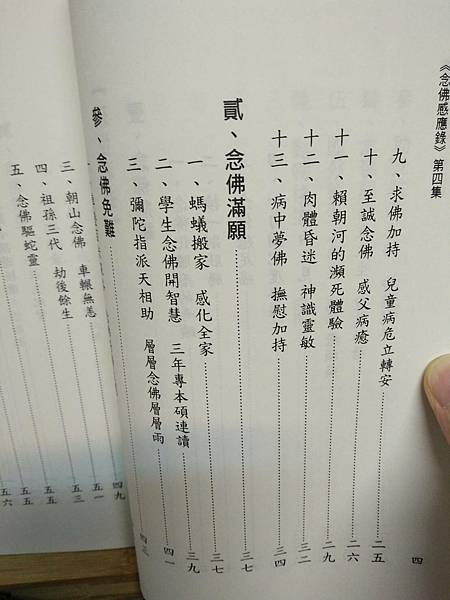 《念佛感應錄》第四集
四
九、求佛加持 兒童病危立轉安 二五
十、至誠念佛 感父病癒 二六
十一、賴朝河的瀕死體驗 二九
十二、肉體昏迷 神識靈敏 三二
十三、病中夢佛 撫慰加持 三四
貳、念佛滿願 三七
一、螞蟻搬家 感化全家 三七
二、學生念佛開智慧 三年專本碩連讀 三九
三、彌陀指派天相助 層層念佛層層雨 四一
四三
參、念佛免難 四九
五一
三、朝山念佛 車輾無恙 五三
四、祖孫三代 劫後餘生 五五
五、念佛驅蛇靈 五五
五六